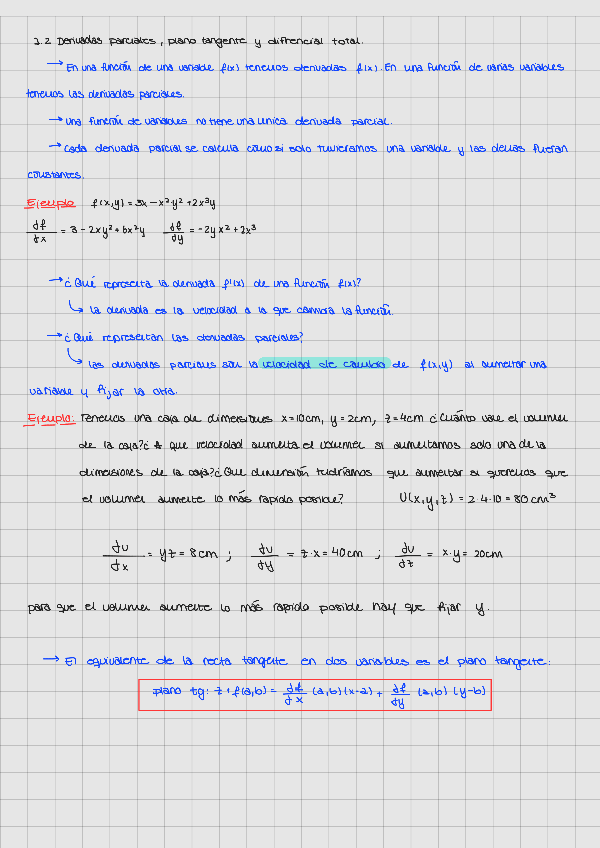 3.2 Derivadas parciales, plano tangente y difrencial total.
→ En una función de una variable f(x) tenemos derivadas f(x). En una función de varias variables
tenemos las derivadas parciales.
→ una función de variables no tiene una unica derivada parcial.
→ Cada derivada parcial se calcula como si solo tuvieramos una variable y las demas fueran
constantes.
Ejemplo f(x,y) = 3x - x²y² + 2x³y
df/dx = 3 - 2xy² + 6x²y df/dy = -2yx² + 2x³
→ ¿Qué representa la derivada f'(x) de una función f(x)?
↳ la derivada es la velocidad a la que cambia la función.
→ ¿Qué representan las derivadas parciales?
↳ las derivadas parciales son la velocidad de cambio de f(x,y) al aumentar una
variable y fijar la otra.
Ejemplo: Tenemos una caja de dimensiones x=10cm, y=2cm, z=4cm ¿Cuánto vale el volumen
de la caja? ¿A que velocidad aumenta el volumen si aumentamos solo una de la
dimensiones de la caja? ¿Que dimensión tendríamos que aumentar si queremos que
el volumen aumente lo más rapido posible? V(x,y,z) = 2·4·10 = 80 cm³
dv/dx = yz = 8cm ; dv/dy = z·x = 40cm ; dv/dz = x·y = 20cm
para que el volumen aumente lo más rapido posible hay que fijar y.
→ El equivalente de la recta tangente en dos variables es el plano tangente:
plano tg: z + f(a,b) = df/dx (a,b)(x-a) + df/dy (a,b) (y-b)